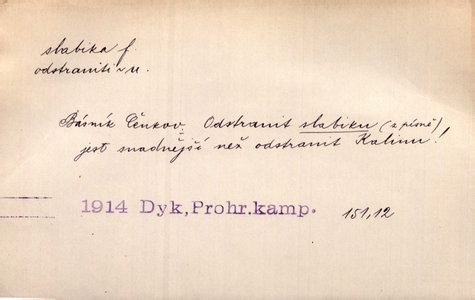 slabika f.
odstraniti ~ u.
Básník Čenkov. Odstranit slabiku (z písně)
jest snadnější než odstranit Kalinu!
1914 Dyk, Prohr. kamp. 151,12